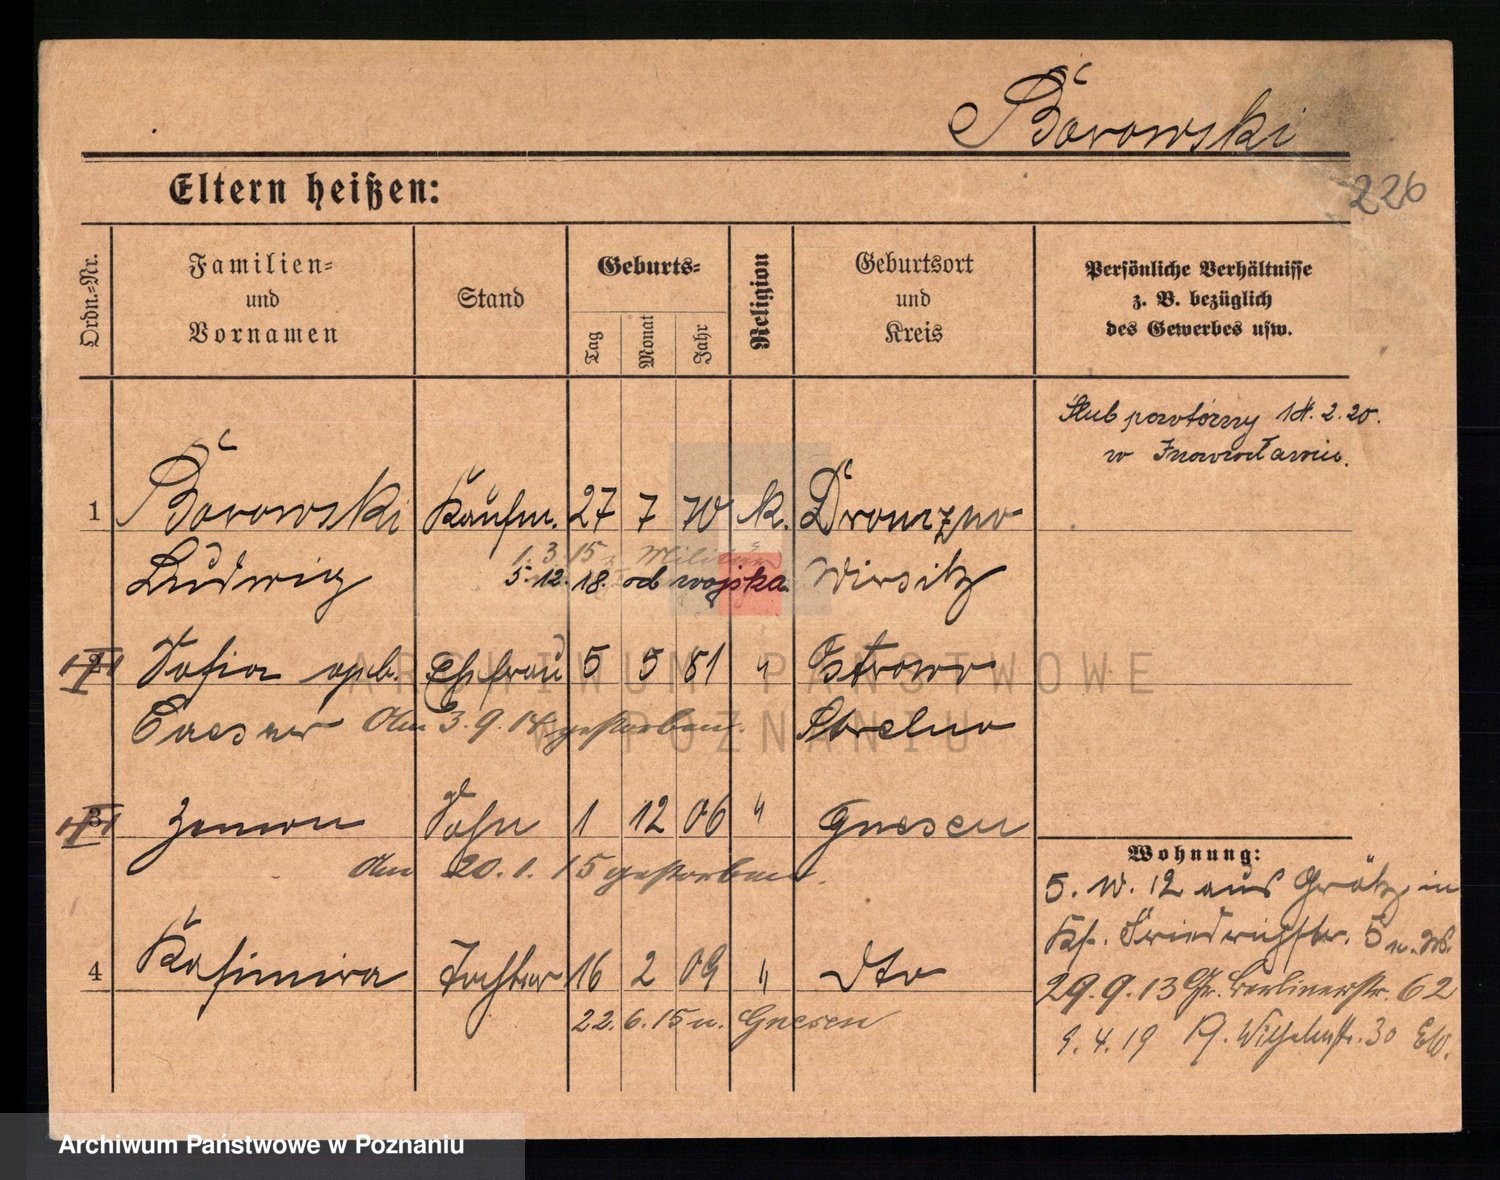 Borowski
226
Eltern heißen:
Ordn.=Nr.
Familien= und Vornamen
Stand
Geburts=
Tag
Monat
Jahr
Religion
Geburtsort und Kreis
Persönliche Verhältnisse
z. B. bezüglich
des Gewerbes usw.
Ślub powtórny 14.2.20.
w Inowrocławiu.
1 Borowski Kaufm. 27 7 70 k. Dromzno
1.3.15 z. Militär
Ludwig 5.12.18. od wojska Wirsitz
2 Sofia geb. Ehefrau 5 5 81 " Ostrowo
Caesar Am 3.9.14 gestorben. Strelno
3 Zenon Sohn 1 12 06 " Gnesen
Am 20.1.15 gestorben.
4 Kasimira Tochter 16 2 09 " dto
22.6.15 n. Gnesen
Wohnung:
5. 10. 12 aus Grätz in
Friedrichstr. 5
29.9.13 Gr. Berlinerstr. 62
9.4.19 Wilhelmstr. 30 EW.
ARCHIWUM PAŃSTWOWE
W POZNANIU
Archiwum Państwowe w Poznaniu